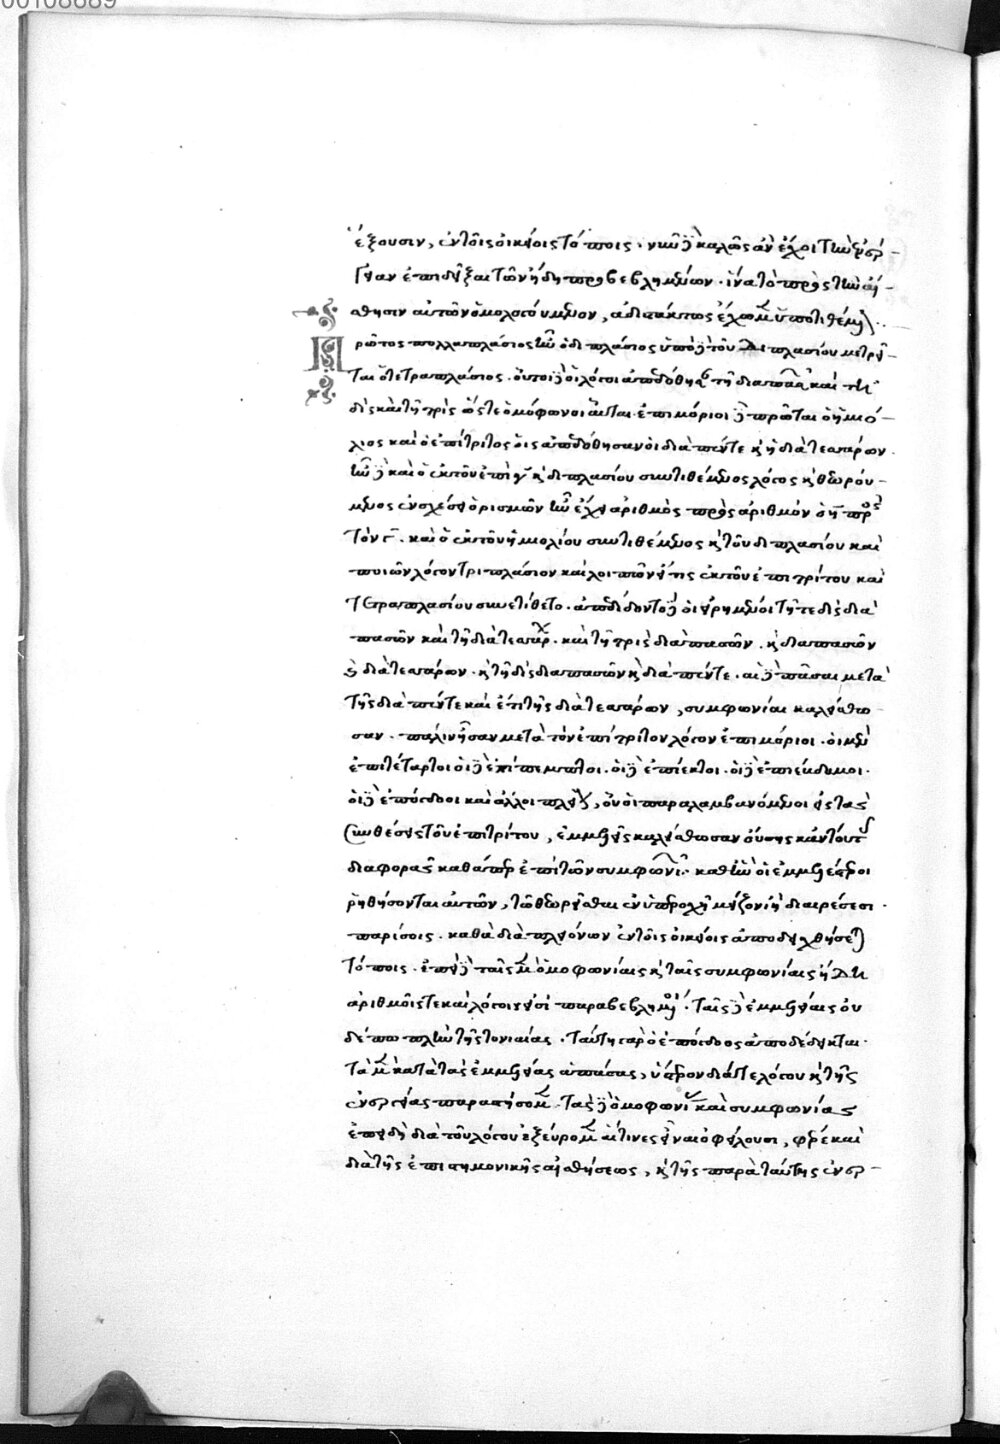 00108689
έξουσιν, ἐν τοῖς οἰκείοις τόποις. νῦν δὲ καλῶς ἂν ἔχοι τὴν ἐνέρ-
γειαν ἐπιδεῖξαι τῶν ἤδη προβεβλημένων. ἵνα τὸ πρὸς τὴν αἴ-
σθησιν αὐτῶν ὁμολογούμενον, ἀδιστάκτως ἔχωμεν ὑποτιθέμεν
Πρῶτος πολλαπλάσιος ἦν ὁ διπλάσιος ὑπὸ δὲ τοῦ διπλασίου μετρεῖ-
ται ὁ τετραπλάσιος. οὗτοι δὲ οἱ λόγοι ἀπεδόθησαν τῇ διαπασῶν καὶ τῇ
δὶς καὶ τῇ τρὶς ὥστε ὁμόφωνοι αὗται. ἐπιμόριοι δὲ πρῶται ὁ ἡμιό-
λιος καὶ ὁ ἐπίτριτος οἷς ἀπεδόθησαν οἱ διὰ πέντε κὴ διὰ τεσσάρων.
ἦν δὲ καὶ ὁ ἐκ τοῦ ἐπὶ γ κὴ διπλασίου συντιθέμενος λόγος κὴ θεωρού-
μενος ἐν σχέσει ὁρισμῶν ἣν ἔχει ἀριθμὸς πρὸς ἀριθμόν ὁ η πρὸς
τὸν γ. καὶ ὁ ἐκ τοῦ ἡμιολίου συντιθέμενος κὴ τοῦ διπλασίου καὶ
ποιῶν λόγον τριπλάσιον καὶ λοιπὸν εἴ τις ἐκ τοῦ ἐπιτρίτου καὶ
τετραπλασίου συνετίθετο. ἀποδίδονται δὲ οἱ εἰρημένοι τῇ τε δὶς διὰ
πασῶν καὶ τῇ διὰ τεσσάρων. καὶ τῇ τρὶς διαπασῶν. κὴ διαπασῶν
κὴ διὰ τεσσάρων. κὴ τῇ δὶς διαπασῶν κὴ διὰ πέντε. αἱ δὲ πᾶσαι μετὰ
τῆς διὰ πέντε καὶ ἔτι τῆς διὰ τεσσάρων, συμφωνίαι καλείσθω-
σαν. πάλιν ἦσαν μετὰ τὸν ἐπίτριτον λόγον ἐπιμόριοι. οἱ μὲν
ἐπιτέταρτοι οἱ δὲ ἐπίπεμπτοι. οἱ δὲ ἐπίεκτοι. οἱ δὲ ἐπιέβδομοι.
οἱ δὲ ἐπόγδοοι καὶ ἄλλοι πλείους, ὃν οἱ παραλαμβανόμενοι εἰς τὰς
συνθέσεις τοῦ ἐπιτρίτου, ἐμμελεῖς καλείσθωσαν οὔσης κἀν τούτοις
διαφορᾶς καθάπερ ἐπὶ τῶν συμφωνιῶν. καθ᾽ ἣν οἱ ἐμμελέστεροι
ῥηθήσονται αὐτῶν, τῷ θεωρεῖσθαι ἐν ὑπεροχῇ μείζονι ἢ διαιρέσεσι.
παρίσοις. καθὰ διὰ πλειόνων ἐν τοῖς οἰκείοις ἀποδειχθήσεται
τόποις. ἐπεὶ δὲ ταῖς μὲν ὁμοφωνίαις κὴ ταῖς συμφωνίαις ἤδη
ἀριθμοῖς τε καὶ λόγοις εἰσὶ παραβεβλημέναι. ταῖς δὲ ἐμμελείαις οὐ
δέπω πλὴν τῆς τονιαίας. ταύτῃ γὰρ ὁ ἐπόγδοος ἀποδέδεικται.
τὰ μὲν κατὰ τὰς ἐμμελείας ἁπάσας, ὕστερον διά τε λόγου κὴ τῆς
ἐνεργείας παραστήσομεν. τὰς δὲ ὁμοφωνίας καὶ συμφωνίας
ἐπειδὴ διὰ τοῦ λόγου ἐξεύρομεν αἵτινες εἶναι ὀφείλουσι, φέρε καὶ
διὰ τῆς ἐπιστημονικῆς αἰσθήσεως, κὴ τῆς παρὰ ταύτης ἐνερ-